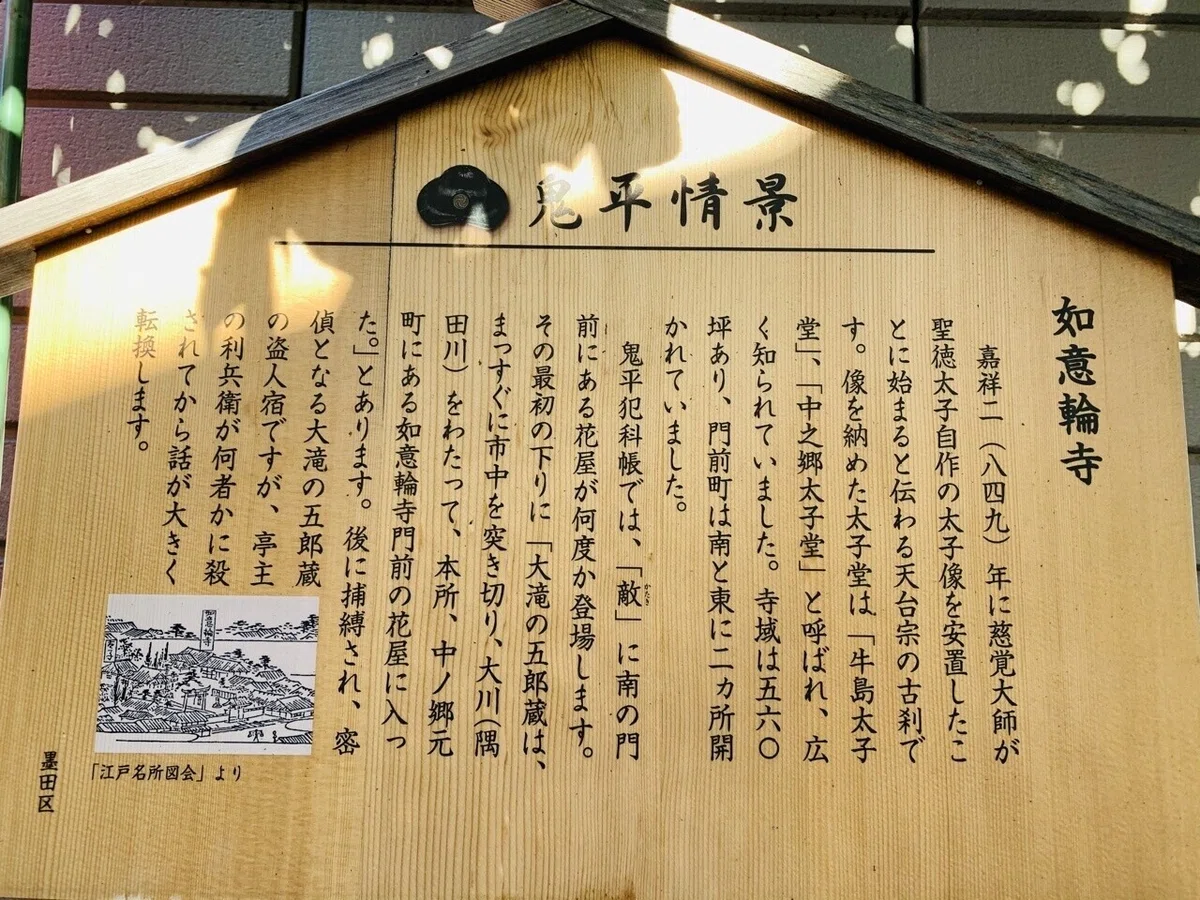 鬼平情景
如意輪寺
嘉祥二（八四九）年に慈覚大師が
聖徳太子自作の太子像を安置したこ
とに始まると伝わる天台宗の古刹で
す。像を納めた太子堂は「牛島太子
堂」、「中之郷太子堂」と呼ばれ、広
く知られていました。寺域は五六〇
坪あり、門前町は南と東に二カ所開
かれていました。
鬼平犯科帳では、「敵」に南の門
かたき
前にある花屋が何度か登場します。
その最初の下りに「大滝の五郎蔵は、
まっすぐに市中を突き切り、大川（隅
田川）をわたって、本所、中ノ郷元
町にある如意輪寺門前の花屋に入っ
た。」とあります。後に捕縛され、密
偵となる大滝の五郎蔵
の盗人宿ですが、亭主
の利兵衛が何者かに殺
されてから話が大きく
転換します。
如意輪寺
「江戸名所図会」より
墨田区